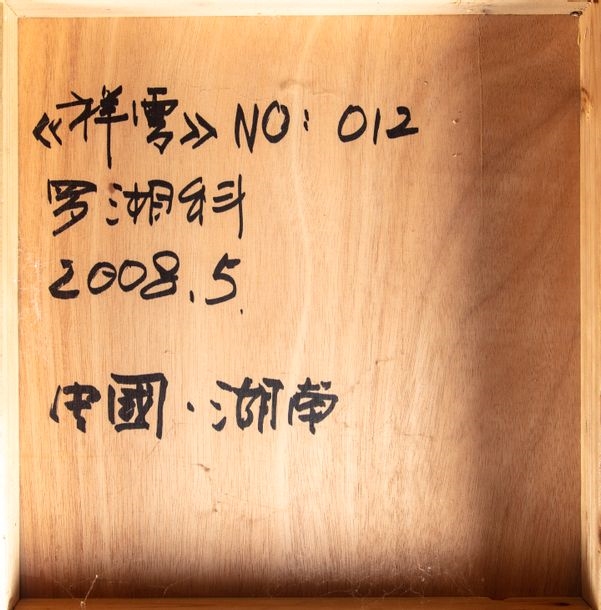 《祥雲》NO: 012
罗湖科
2008.5.
中國·湖南